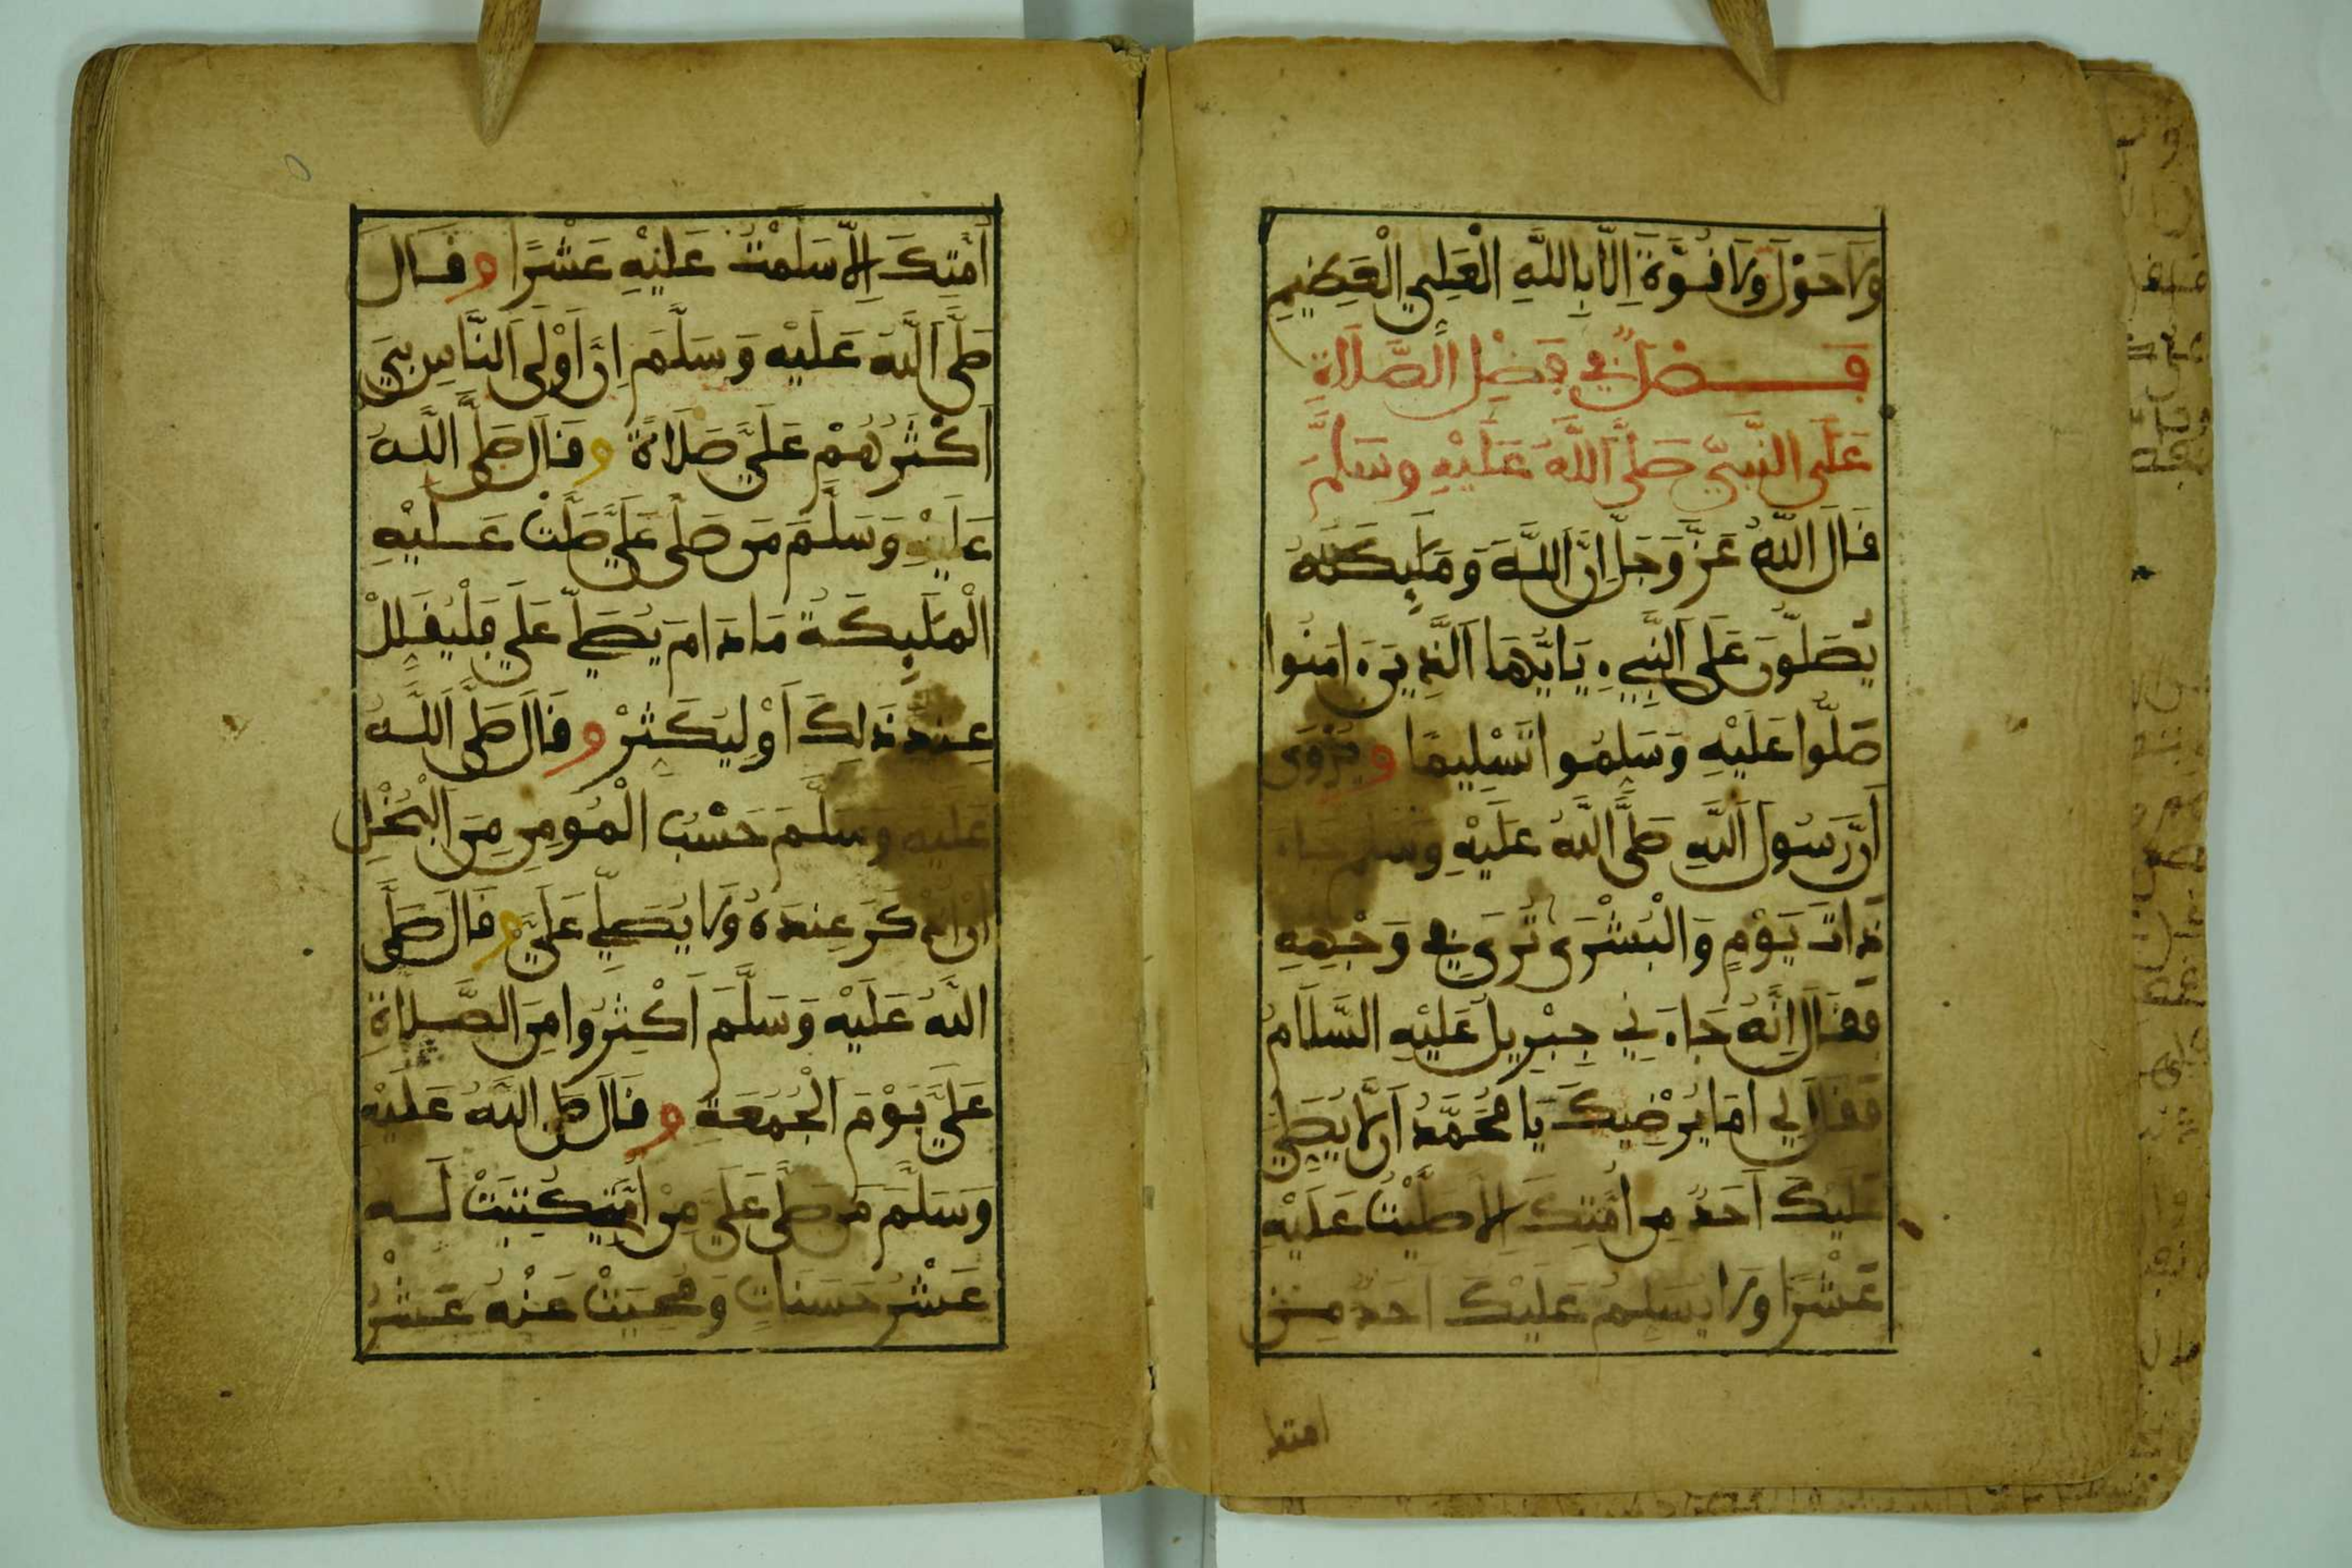 وَلَا حَوْلَ وَلَا قُوَّةَ إِلَّا بِاللَّهِ الْعَلِيِّ الْعَظِيمِ
فَصْلٌ فِي فَضْلِ الصَّلَاةِ
عَلَى النَّبِيِّ صَلَّى اللَّهُ عَلَيْهِ وَسَلَّمَ
قَالَ اللَّهُ عَزَّ وَجَلَّ إِنَّ اللَّهَ وَمَلَٰئِكَتَهُ
يُصَلُّونَ عَلَى النَّبِيءِ يَا أَيُّهَا الَّذِينَ ءَامَنُوا
صَلُّوا عَلَيْهِ وَسَلِّمُوا تَسْلِيمًا وَيُرْوَى
أَنَّ رَسُولَ اللَّهِ صَلَّى اللَّهُ عَلَيْهِ وَسَلَّمَ جَاءَ
ذَاتَ يَوْمٍ وَالْبُشْرَى تُرَى فِي وَجْهِهِ
فَقَالَ إِنَّهُ جَاءَنِي جِبْرِيلُ عَلَيْهِ السَّلَامُ
فَقَالَ لِي أَمَا يُرْضِيكَ يَا مُحَمَّدُ أَن لَّا يُصَلِّيَ
عَلَيْكَ أَحَدٌ مِنْ أُمَّتِكَ إِلَّا صَلَّيْتُ عَلَيْهِ
عَشْرًا وَلَا يُسَلِّمُ عَلَيْكَ أَحَدٌ مِنْ
امتك
أُمَّتِكَ إِلَّا سَلَّمْتُ عَلَيْهِ عَشْرًا وَقَالَ
صَلَّى اللَّهُ عَلَيْهِ وَسَلَّمَ إِنَّ أَوْلَى النَّاسِ بِيَ
أَكْثَرُهُمْ عَلَيَّ صَلَاةً وَقَالَ صَلَّى اللَّهُ
عَلَيْهِ وَسَلَّمَ مَن صَلَّى عَلَيَّ صَلَّتْ عَلَيْهِ
الْمَلَٰئِكَةُ مَا دَامَ يُصَلِّي عَلَيَّ فَلْيُقَلِّلْ
عِندَ ذَلِكَ أَوْ لِيُكَثِّرْ وَقَالَ صَلَّى اللَّهُ
عَلَيْهِ وَسَلَّمَ حَسْبُ الْمُومِنِ مِنَ الْبُخْلِ
أَنْ أُذْكَرَ عِندَهُ وَلَا يُصَلِّي عَلَيَّ وَقَالَ صَلَّى
اللَّهُ عَلَيْهِ وَسَلَّمَ أَكْثِرُوا مِنَ الصَّلَاةِ
عَلَيَّ يَوْمَ الْجُمُعَةِ وَقَالَ صَلَّى اللَّهُ عَلَيْهِ
وَسَلَّمَ مَن صَلَّى عَلَيَّ مِنْ أُمَّتِي كُتِبَتْ لَهُ
عَشْرُ حَسَنَاتٍ وَمُحِيَتْ عَنْهُ عَشْرُ